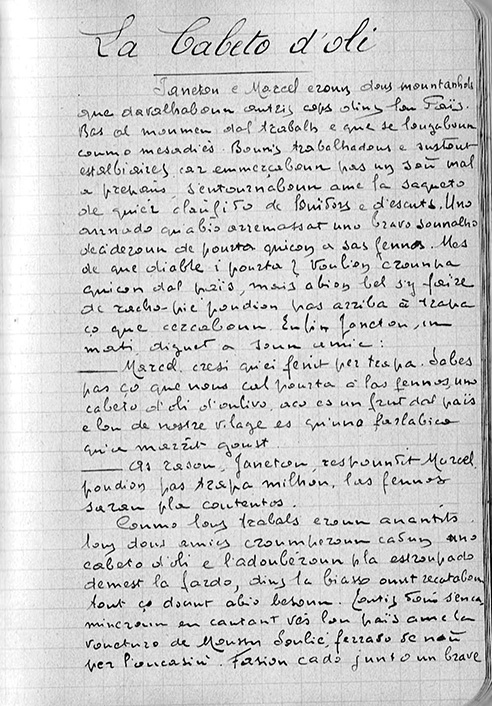 La Cabeto d'oli
Janeton e Marcel eroun dous mountanhols
que davalhaboun autris cops dins lou Païs.
Bas al moumen dal trabalh e que se lougaboun
coumo mesadiès. Bounis trabalhadous e surtout
estalbiaires car emmerçaboun pas un soòu mal
a prepaus s'entournaboun ame la saqueto
de quier claufido de louidors e d'escuts. Uno
annado qu'abio arremassat uno bravo sounalho
decideroun de pourta quicon a sas fennos. Mes
de que diable i pourta? Voulion croumpa
quicon dal païs, mais abion bel s'y faire
de racho-pic poudion pas arriba à trapa
ço que cercaboun. Enfin Janeton, un
mati diguet a soun amic:
— Marcel, cresi qu'ei fenit per trapa. Sabes
pas ço que nous cal pourta a las fennos, uno
cabeto d'oli d'oulivo, aco es un frut dal païs
e lou de nostre vilage es qu'uno farlabico
qu'a marrit goust
— As rasou, Janeton, respoundit Marcel
poudion pas trapa milhou, las fennos
saran pla countentos.
Coumo lous trabals eroun anantits
lous dous amics croumperoun cadun uno
cabeto d'oli e l'adoubéroun pla estroupado
demest la fardo, dins la biasso ount recataboun
tout ço dount abio besoun.
mineroun en cantant vès lou païs ame la
voueturo de Moussu Soulié, ferraro se noun
per l'oucasiu. Fasion cado junto un brave